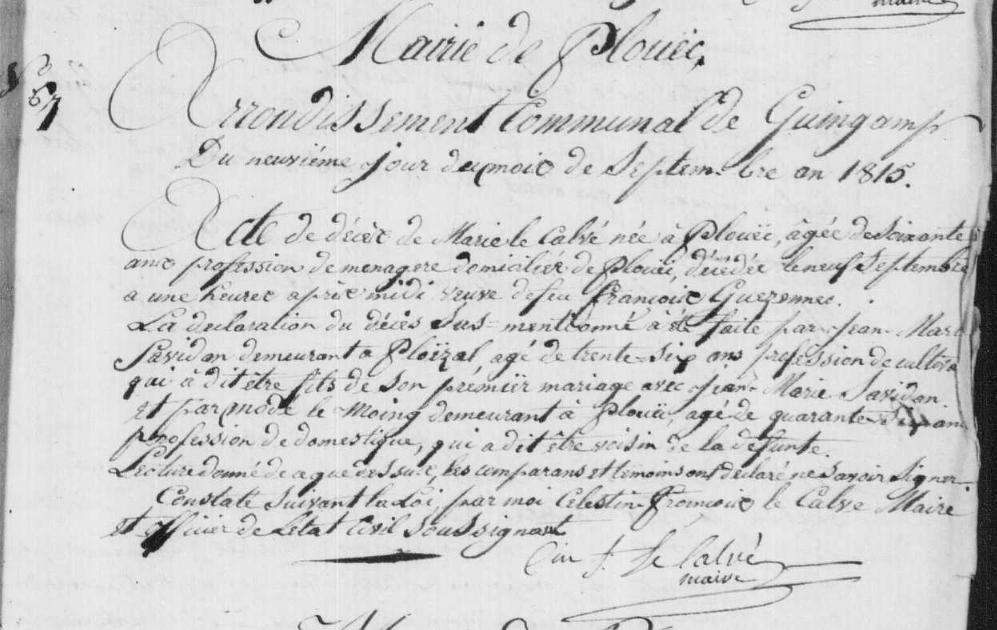 maire
Mairie de Plouëc,
N° 57
Arrondissement Communal de Guingamp
Du neuviéme jour du mois de Septembre an 1815.
Acte de décès de Marie le Calvé née à Plouëc, âgée de Soixante
ans profession de menagere domiciliée de Plouëc, décédée le neuf Septembre
a une heures après midi veuve de feu François Guezennec.
La declaration du décès Sus-mentionné à été faite par Jean Marie
Savidan demeurant a Ploëzal, agé de trente-Six ans profession de cultiva
qui à dit être fils de Son premiér mariage avec Jean Marie Savidan.
et par mode le Moing demeurant à Plouëc, agé de quarante Six ans
profession de domestique, qui a dit être voisin de la defunte.
Lecture donné de a que dessus, les comparans et temoins ont déclaré ne Savoir Signer.
Constaté Suivant la Loi par moi Celestin François le Calvé Maire
et officier de Letat Civil Soussignant
f. Le Calvé
maire